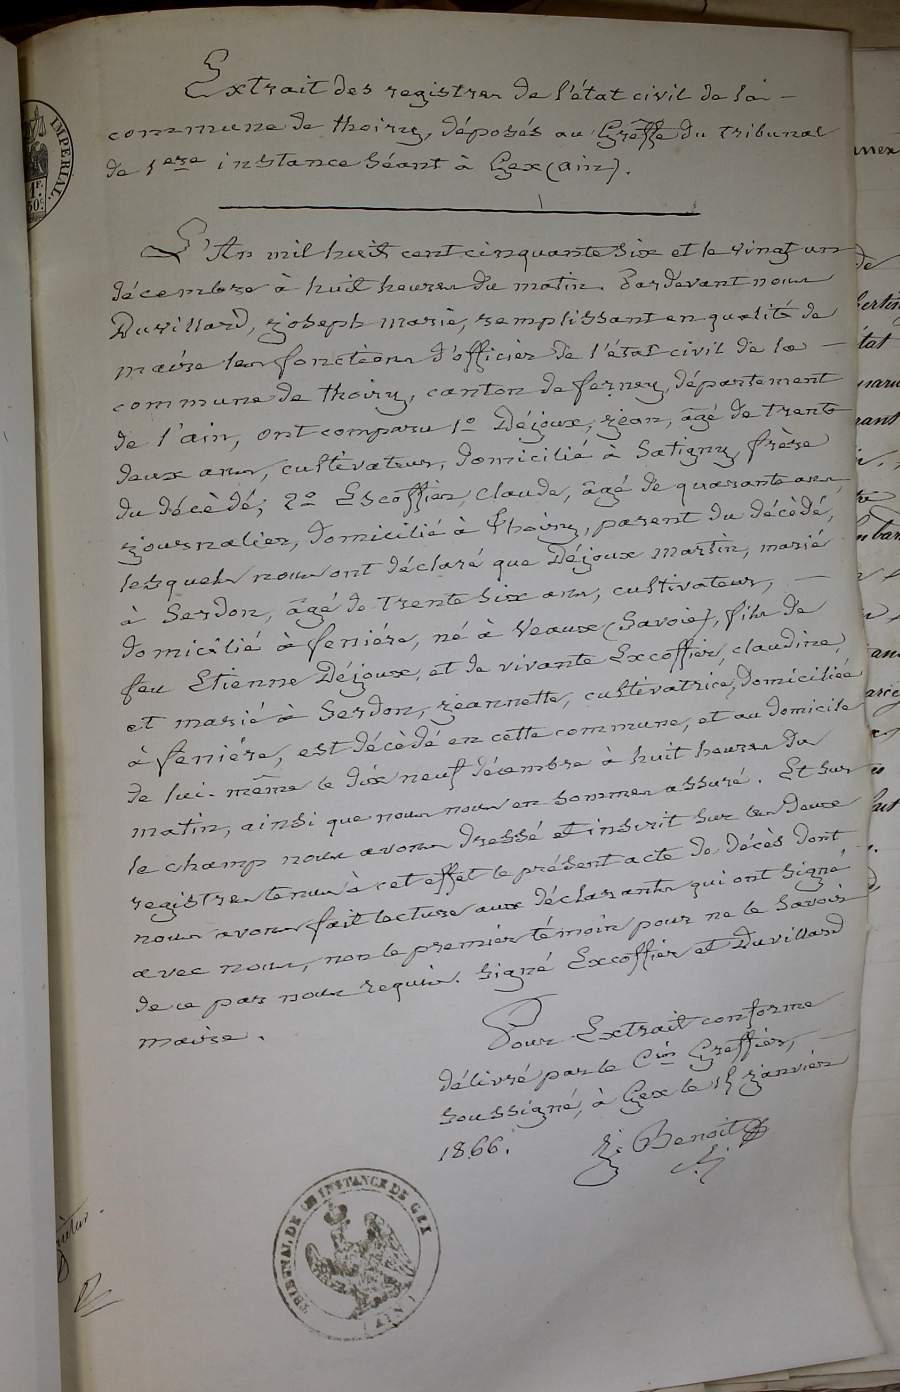 Extrait des registres de l'état civil de la
commune de Thoiry, déposés au Greffe du tribunal
de 1ere instance séant à Gex (ain).
L'An mil huit cent cinquante six et le vingt un
décembre à huit heures du matin. Pardevant nous
Duvillard, Joseph Marie, remplissant en qualité de
maire les fonctions d'officier de l'état civil de la
commune de Thoiry, canton de ferney, département
de l'ain, ont comparu 1º Déjoux, Jean, âgé de trente
deux ans, cultivateur, domicilié à Satigny, frère
du décèdé; 2º Escoffier, claude, âgé de quarante ans,
journalier, domicilié à Thoiry, parent du décèdé,
lesquels nous ont déclaré que Déjoux Martin, marié
à Serdon, âgé de trente six ans, cultivateur,
domicilié à feniére, né à Veaux (Savoie), fils de
feu Etienne Déjoux, et de vivante Excoffier, claudine,
et marié à Serdon, jeannette, cultivatrice, domiciliée
à feniére, est décèdé en cette commune, et au domicile
de lui-même le dix neuf décembre à huit heures du
matin, ainsi que nous nous en sommes assuré. Et sur
le champ nous avons dressé et inscrit sur les deux
registres tenus à cet effet le présent acte de décès dont
nous avons fait lecture aux déclarants qui ont signé
avec nous, non le premier témoin pour ne le savoir
de ce par nous requis. Signé Excoffier et Duvillard
maire.
Pour Extrait conforme
délivré par le Cis Greffier,
soussigné, à Gex le 15 janvier
1866.
J. Benoit
TRIBUNAL DE 1RE INSTANCE DE GEX
(AIN)
IMPERIAL.